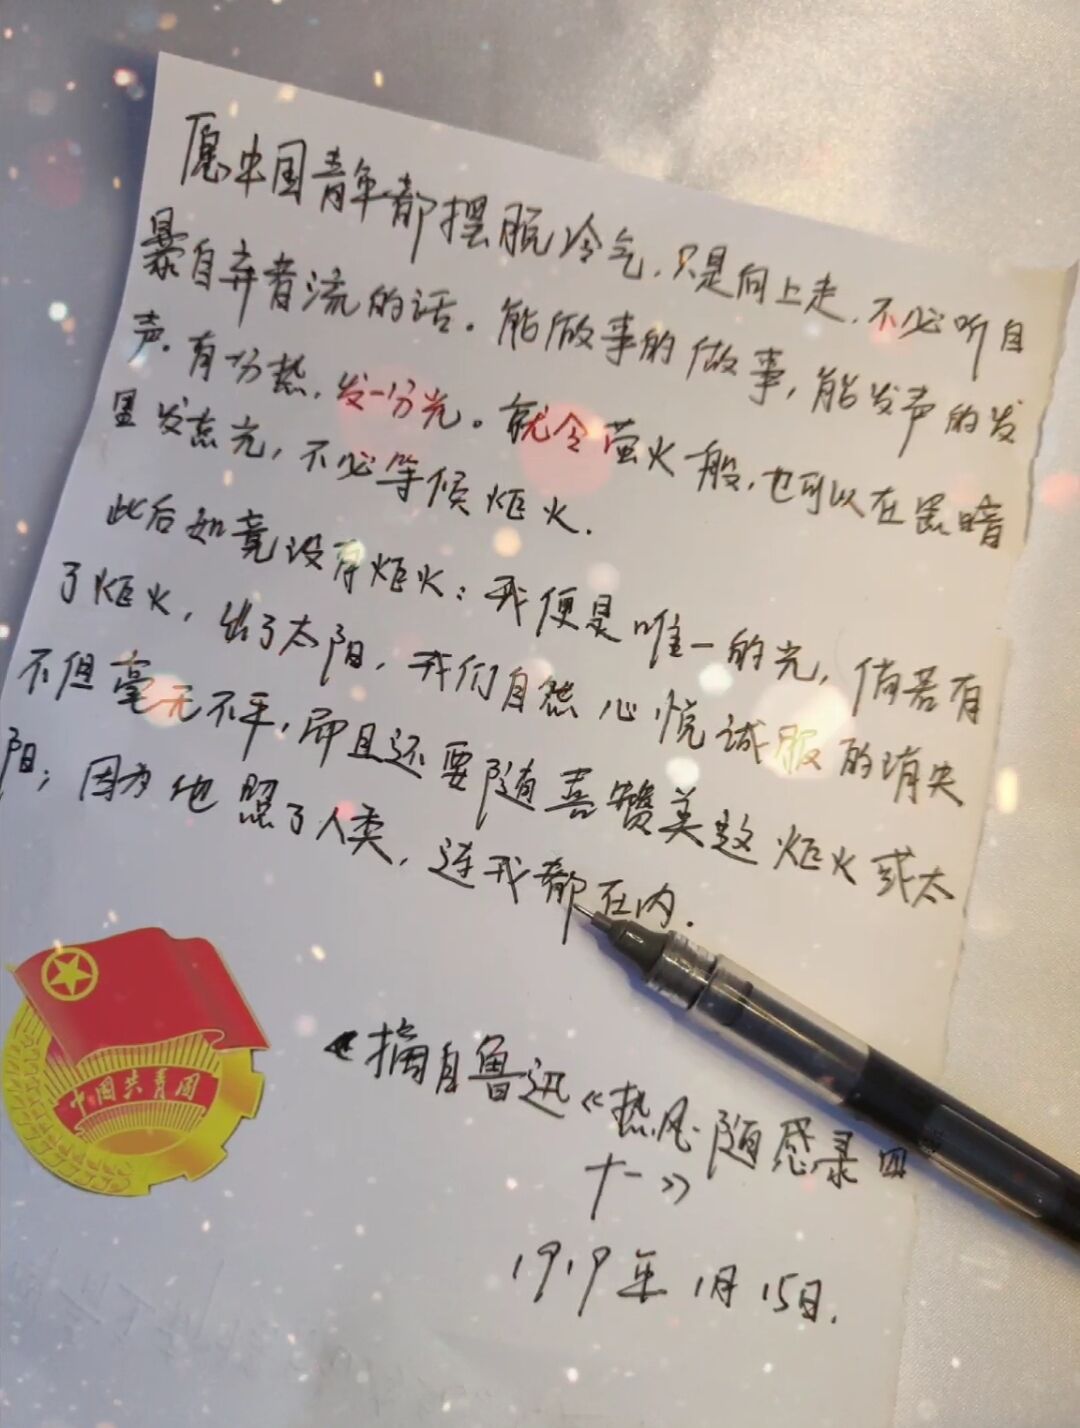 愿中国青年都摆脱冷气，只是向上走，不必听自
暴自弃者流的话。能做事的做事，能发声的发
声。有一分热，发一分光。就令萤火一般，也可以在黑暗
里发点光，不必等候炬火。
此后如竟没有炬火：我便是唯一的光，倘若有
了炬火，出了太阳，我们自然心悦诚服的消失
不但毫无不平，而且还要随喜赞美这炬火或太
阳；因为他照了人类，连我都在内。
摘自鲁迅《热风·随感录四
十一》
1919年1月15日.
中国共青团